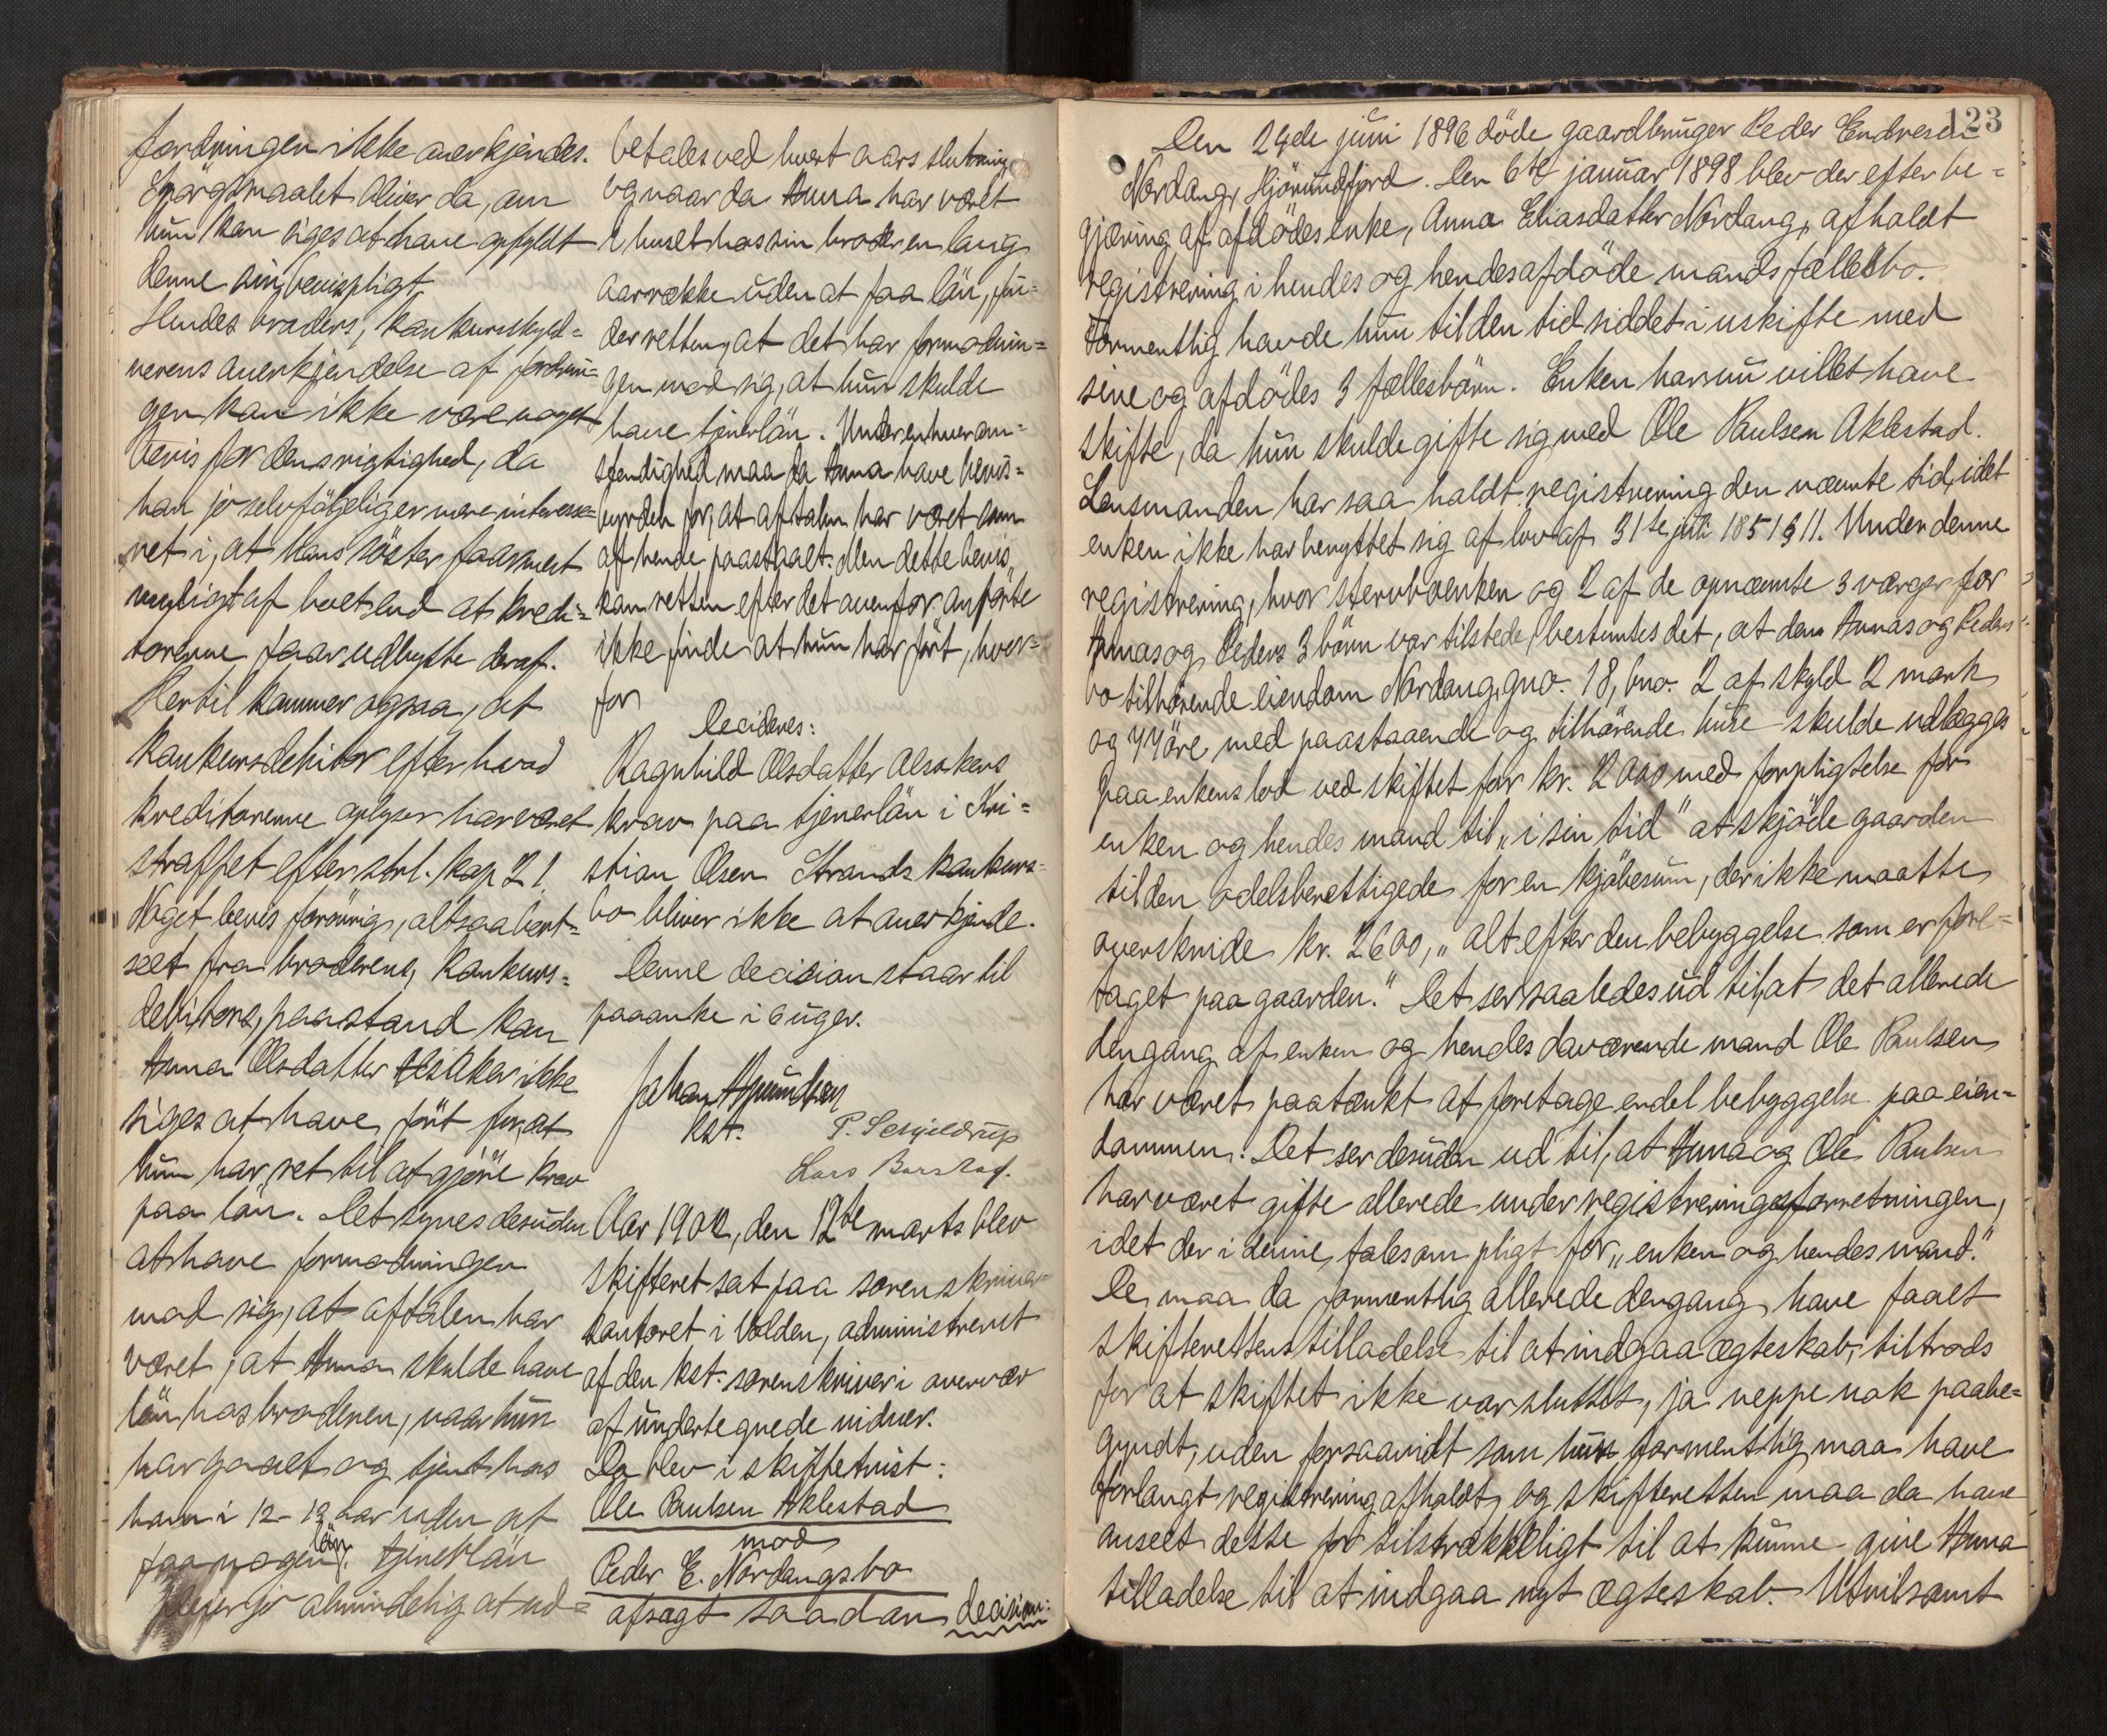 fordringen ikke anerkjendes.
Spörgsmaalet bliver da, om
hun kan siges at have opfyldt
denne sin bevispligt.
Hendes broders, konkursskyld=
nerens anerkjendelse af fordrin=
gen kan ikke være noget
bevis for dens rigtighed, da
han jo selvfölgelig er mere interesse=
ret i, at hans söster faar mest
muligt af boet end at kredi=
torerne faar udbytte deraf.
Hertil kommer ogsaa, at
konkursdebitor efter hvad
kreditorerne oplyser har været
straffet efter strl. kap 21.
Noget bevis forövrig, altsaa bort=
seet fra broderens, konkurs=
debitors, paastand kan
Anna Olsdatter Alsaker ikke
siges at have fört for, at
hun har ret til at gjöre krav
paa lön. Det synes desuden
at have formodningen
mod sig, at aftalen har
været, at Anna skulde have
lön hos broderen, naar hun
har gaaet og tjent hos
ham i 12-13 aar uden at
faa nogen lön. Tjenerlön
pleier jo almindelig at ud=
betales ved hvert aars slutning
og naar da Anna har været
i huset hos sin broder en lang
aarrække uden at faa lön, fin=
der retten, at det har formodnin=
gen mod sig, at hun skulde
have tjenerlön. Under enhver om=
stendighed maa da Anna have bevis=
byrden for, at aftalen har været som
af hende paastaaet. Men dette bevis
kan retten efter det ovenfor anförte
ikke finde at hun har fört, hvor=
for
Decideres:
Ragnhild Olsdatter Alsakers
krav paa tjenerlön i Kri=
stian Olsen Strands konkurs=
bo bliver ikke at anerkjende.
Denne decision staar til
paaanke i 6 uger.
Johan Amundsen
kst.
P. Schjeldrup
Lars Barstad.
Aar 1902, den 12te marts blev
skifteret sat paa sorenskriver=
kontoret i Volden, administreret
af den kst. sorenskriver i overvær
af undertegnede vidner.
Da blev i skiftetvist:
Ole Paulsen Aklestad
mod
Peder E. Nordangs bo
afsagt saadan decision:
123
Den 24de juni 1896 döde gaardbruger Peder Endresen
Nordang, Hjörundfjord. Den 6te januar 1898 blev der efter be=
gjæring af afdödes enke, Anna Eliasdatter Nordang, afholdt
registrering i hendes og hendes afdöde mands fællesbo.
Formentlig havde hun til den tid siddet i uskifte med
sine og afdödes 3 fællesbörn. Enken har nu villet have
skifte, da hun skulde gifte sig med Ole Paulsen Aklestad.
Lensmanden har saa holdt registrering den nævnte tid, idet
enken ikke har benyttet sig af lov af 31te juli 1851 § 11. Under denne
registrering, hvor stervboenken og 2 af de opnævnte 3 værger for
Annas og Peders 3 börn var tilstede, bestemtes det, at den Annas og Peders
bo tilhörende eiendom Nordang, gno. 18, bno. 2 af skyld 2 mark
og 44 öre, med paastaaende og tilhörende huse skulde udlægges
paa enkens lod ved skiftet for kr. 2000 med forpligtelse for
enken og hendes mand til „i sin tid" at skjöde gaarden
til den odelsberettigede for en kjöbesum, der ikke maatte
overskride kr. 2600, „alt efter den bebyggelse som er fore=
taget paa gaarden." Det ser saaledes ud til, at det allerede
dengang af enken og hendes daværende mand Ole Paulsen
har været paatænkt at foretage endel bebyggelse paa eien=
dommen. Det ser desuden ud til, at Anna og Ole Paulsen
har været gifte allerede under registreringsforretningen,
idet der i denne tales om pligt for „enken og hendes mand."
De maa da formentlig allerede dengang have faaet
skifterettens tilladelse til at indgaa ægteskab, tiltrods
for at skiftet ikke var sluttet, ja neppe nok paabe=
gyndt, uden forsaavidt som hun formentlig maa have
forlangt registrering afholdt, og skifteretten maa da have
anseet dette for tilstrækkeligt til at kunne give Anna
tilladelse til at indgaa nyt ægteskab. Utvilsomt